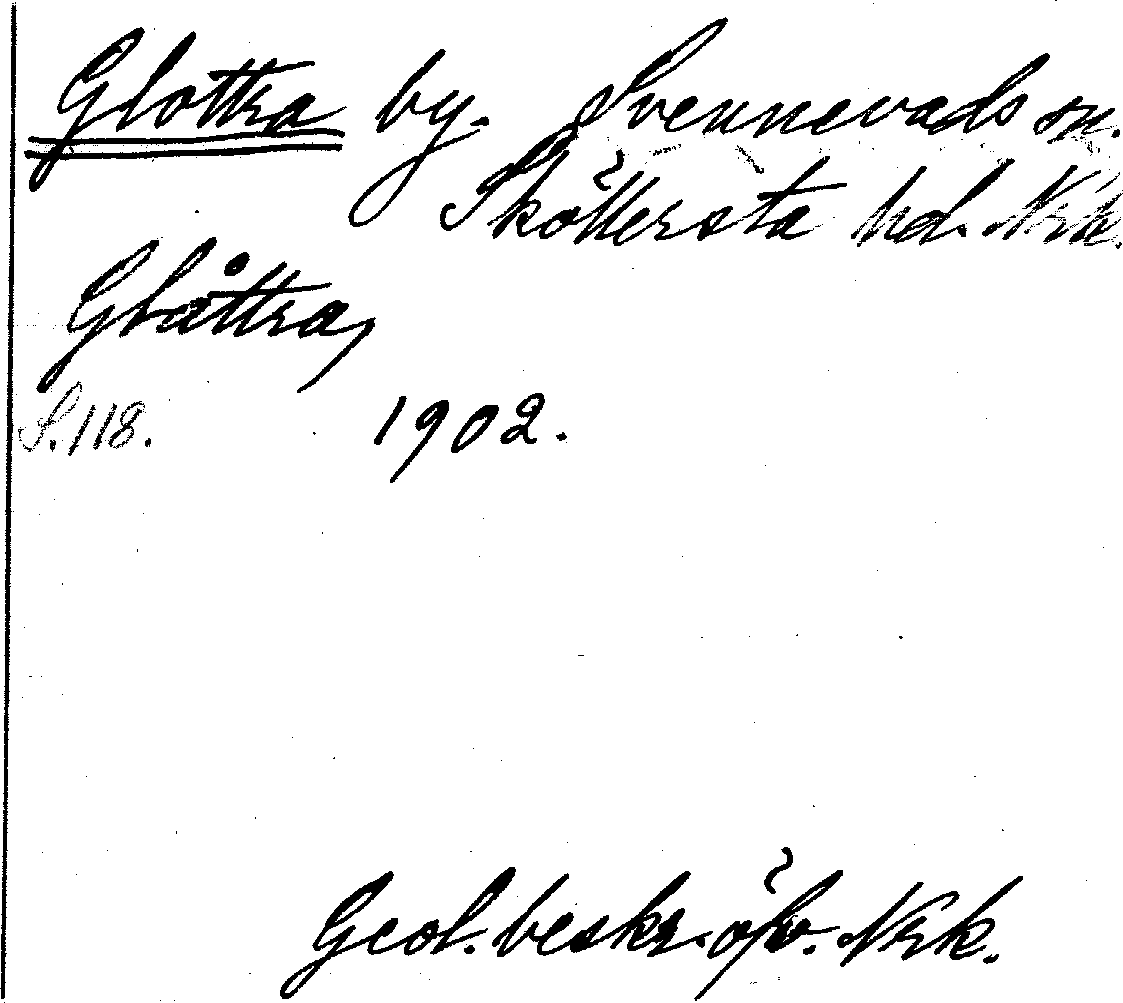 Glottra by. Svennevads sn.
Sköllersta hd. Nrk.
Glåttra,
S. 118. 1902.
Geol. beskr. öfv. Nrk.